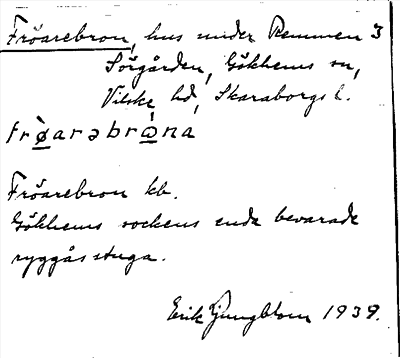 Fröarebron, hus under Remmen 3
Sörgården, Gökhems sn,
Vilske hd, Skaraborgs l.
frø̀arəbrωna
Fröarebron kb.
Gökhems sockens enda bevarade
ryggåsstuga.
Erik Ljungblom 1939.